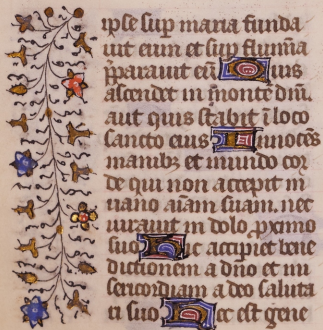 ipse sup maria funda
uit eum et sup flumīa
p̄parauit eū Quis
ascendet in mōntē dnī
aut quis stabit ī loco
sancto eius Innocēs
manibȝ et mundo cor
de qui non accepit in
uano aīam suam nec
iurauit in dolo pximo
suo hic accipiet bene
dictionem a dno et mi
sericordiam a deo saluta
ri suo hec est gene